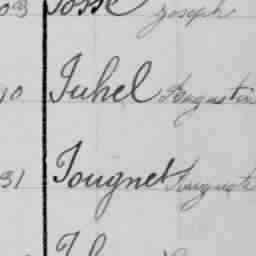 03 Josse Joseph
10 Juhel Augustin
31 Jougnet Auguste